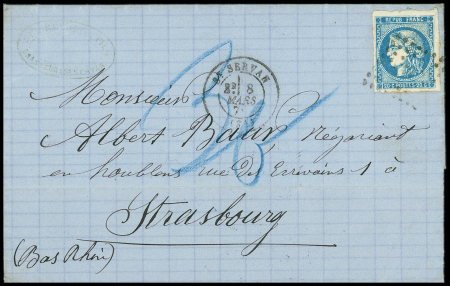 REPUB. FRANC.
ST SERVAN
8
MARS
Monsieur
Albert Baur Négociant
en houblons rue des Ecrivains 1 à
Strasbourg
(Bas Rhin)